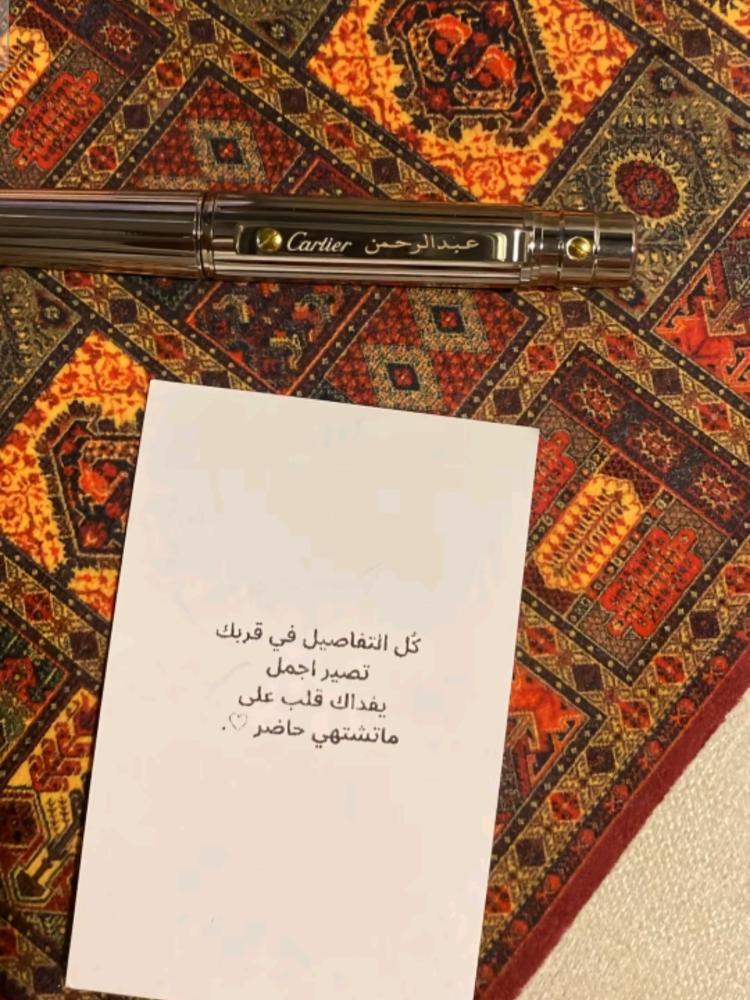 Cartier عبدالرحمن
كُل التفاصيل في قربك
تصير اجمل
يفداك قلب على
ماتشتهي حاضر ♡.